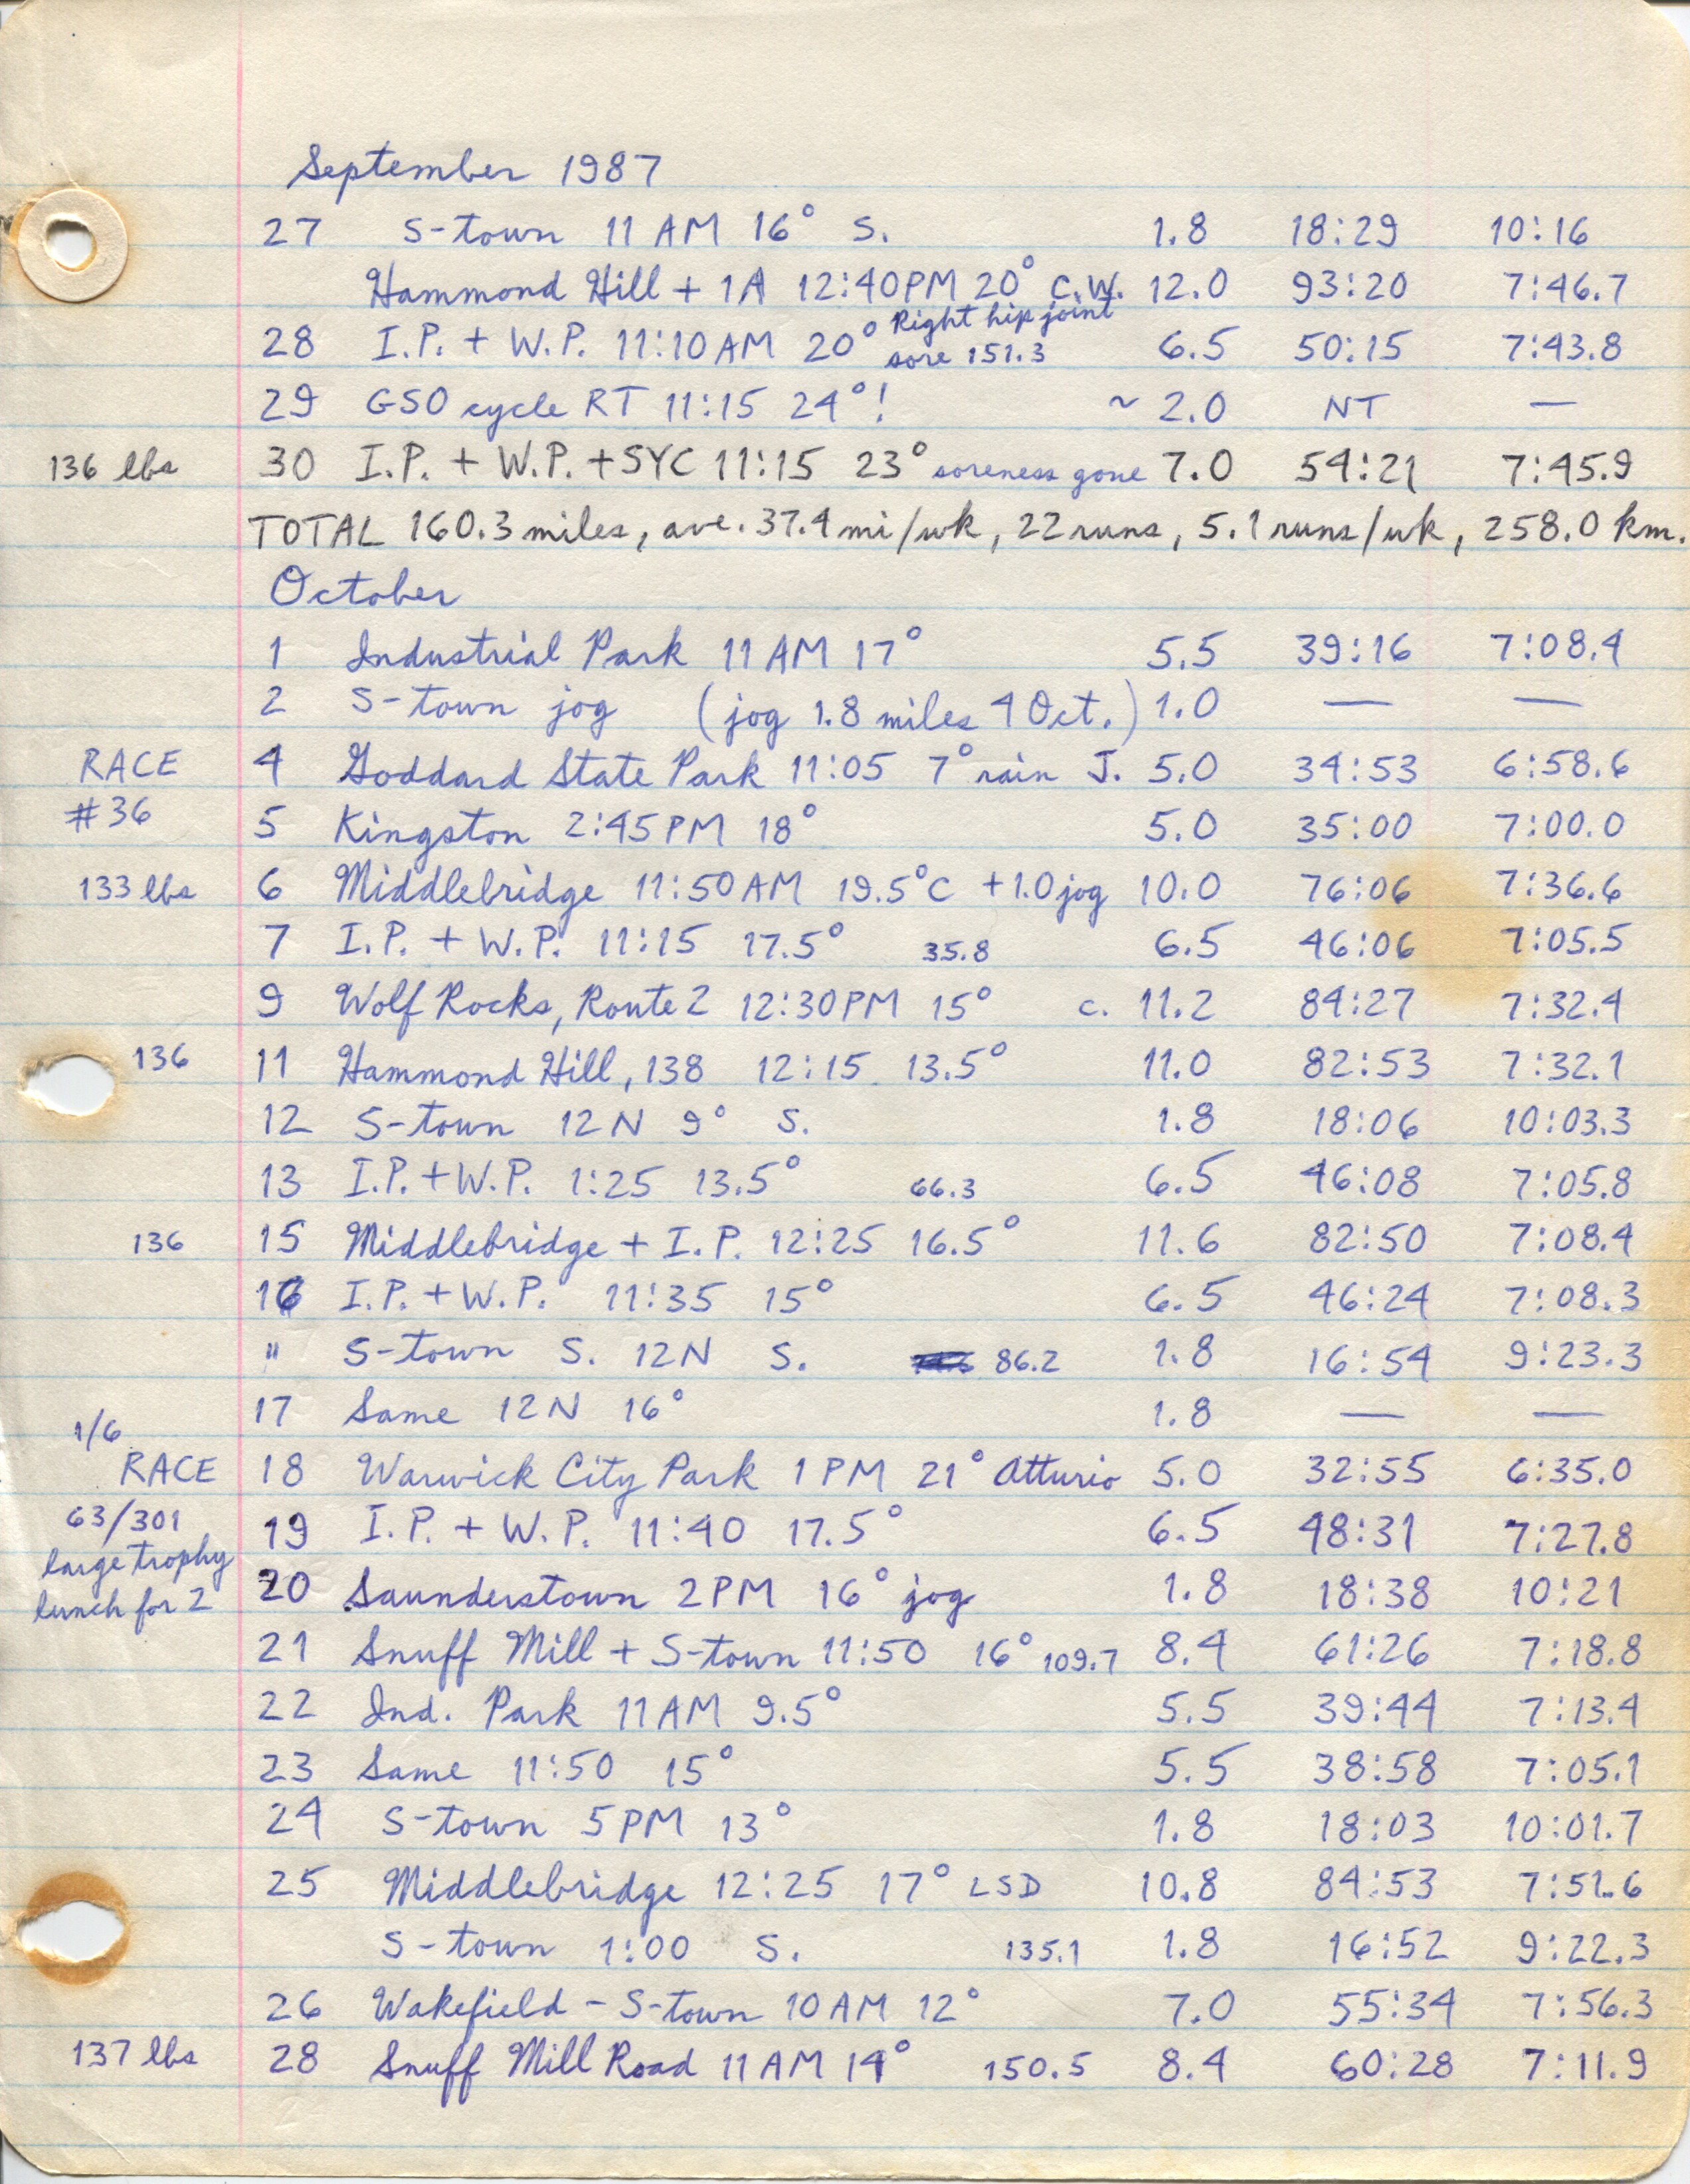 September 1987
27 S-town 11 AM 16° S. 1.8 18:29 10:16
Hammond Hill + 1A 12:40PM 20° C.W. 12.0 93:20 7:46.7
28 I.P. + W.P. 11:10AM 20° Right hip joint sore 151.3 6.5 50:15 7:43.8
29 GSO cycle RT 11:15 24°! ~ 2.0 NT —
136 lbs 30 I.P. + W.P. + SYC 11:15 23° soreness gone 7.0 54:21 7:45.9
TOTAL 160.3 miles, ave. 37.4 mi/wk, 22 runs, 5.1 runs/wk, 258.0 km.
October
1 Industrial Park 11 AM 17° 5.5 39:16 7:08.4
2 S-town jog (jog 1.8 miles 4 Oct.) 1.0 — —
RACE 4 Goddard State Park 11:05 7° rain J. 5.0 34:53 6:58.6
#36 5 Kingston 2:45PM 18° 5.0 35:00 7:00.0
133 lbs 6 Middlebridge 11:50AM 19.5°C +1.0 jog 10.0 76:06 7:36.6
7 I.P. + W.P. 11:15 17.5° 35.8 6.5 46:06 7:05.5
9 Wolf Rocks, Route 2 12:30PM 15° c. 11.2 84:27 7:32.4
136 11 Hammond Hill, 138 12:15 13.5° 11.0 82:53 7:32.1
12 S-town 12N 9° S. 1.8 18:06 10:03.3
13 I.P. + W.P. 1:25 13.5° 66.3 6.5 46:08 7:05.8
136 15 Middlebridge + I.P. 12:25 16.5° 11.6 82:50 7:08.4
16 I.P. + W.P. 11:35 15° 6.5 46:24 7:08.3
" S-town S. 12N S. 86.2 1.8 16:54 9:23.3
17 Same 12N 16° 1.8 — —
1/6
RACE 18 Warwick City Park 1 PM 21° Atturio 5.0 32:55 6:35.0
63/301 19 I.P. + W.P. 11:40 17.5° 6.5 48:31 7:27.8
large trophy
lunch for 2 20 Saunderstown 2PM 16° jog 1.8 18:38 10:21
21 Snuff Mill + S-town 11:50 16° 109.7 8.4 61:26 7:18.8
22 Ind. Park 11AM 9.5° 5.5 39:44 7:13.4
23 Same 11:50 15° 5.5 38:58 7:05.1
24 S-town 5PM 13° 1.8 18:03 10:01.7
25 Middlebridge 12:25 17° LSD 10.8 84:53 7:51.6
S-town 1:00 S. 135.1 1.8 16:52 9:22.3
26 Wakefield - S-town 10AM 12° 7.0 55:34 7:56.3
137 lbs 28 Snuff Mill Road 11AM 14° 150.5 8.4 60:28 7:11.9